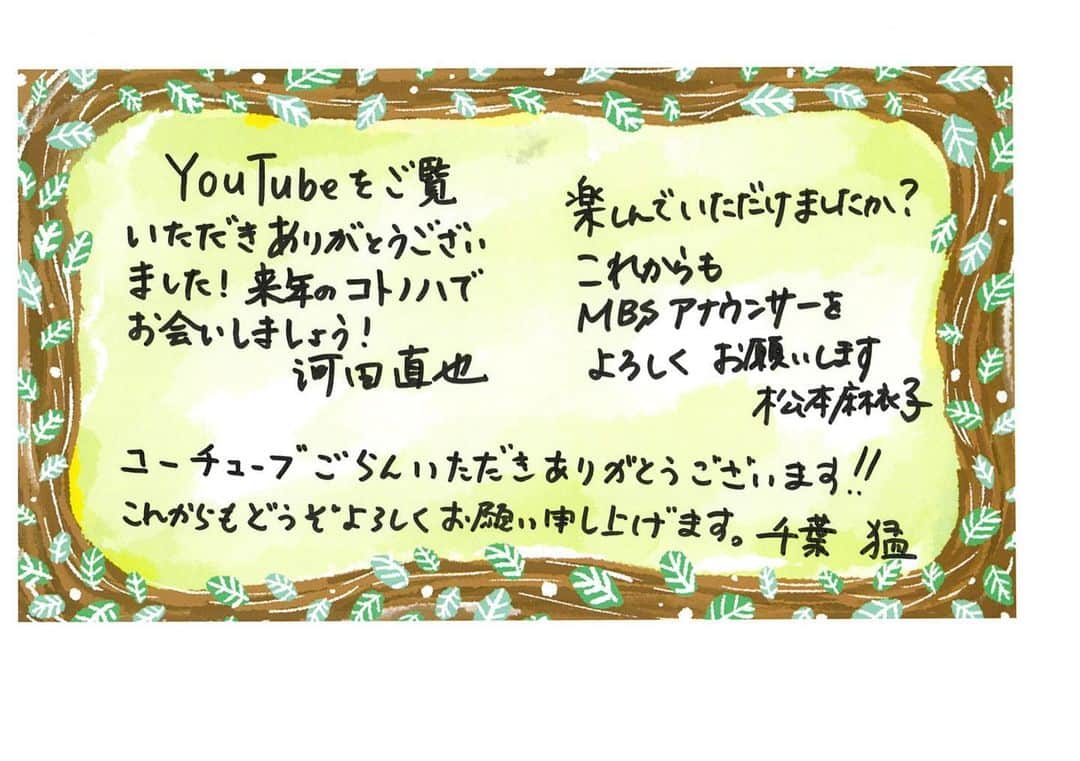 YouTubeをご覧
いただきありがとうござい
ました！来年のコトノハで
お会いしましょう！
河田直也
楽しんでいただけましたか？
これからも
MBSアナウンサーを
よろしく お願いします
松本麻衣子
ユーチューブごらんいただきありがとうございます!!
これからもどうぞよろしくお願い申し上げます。千葉 猛